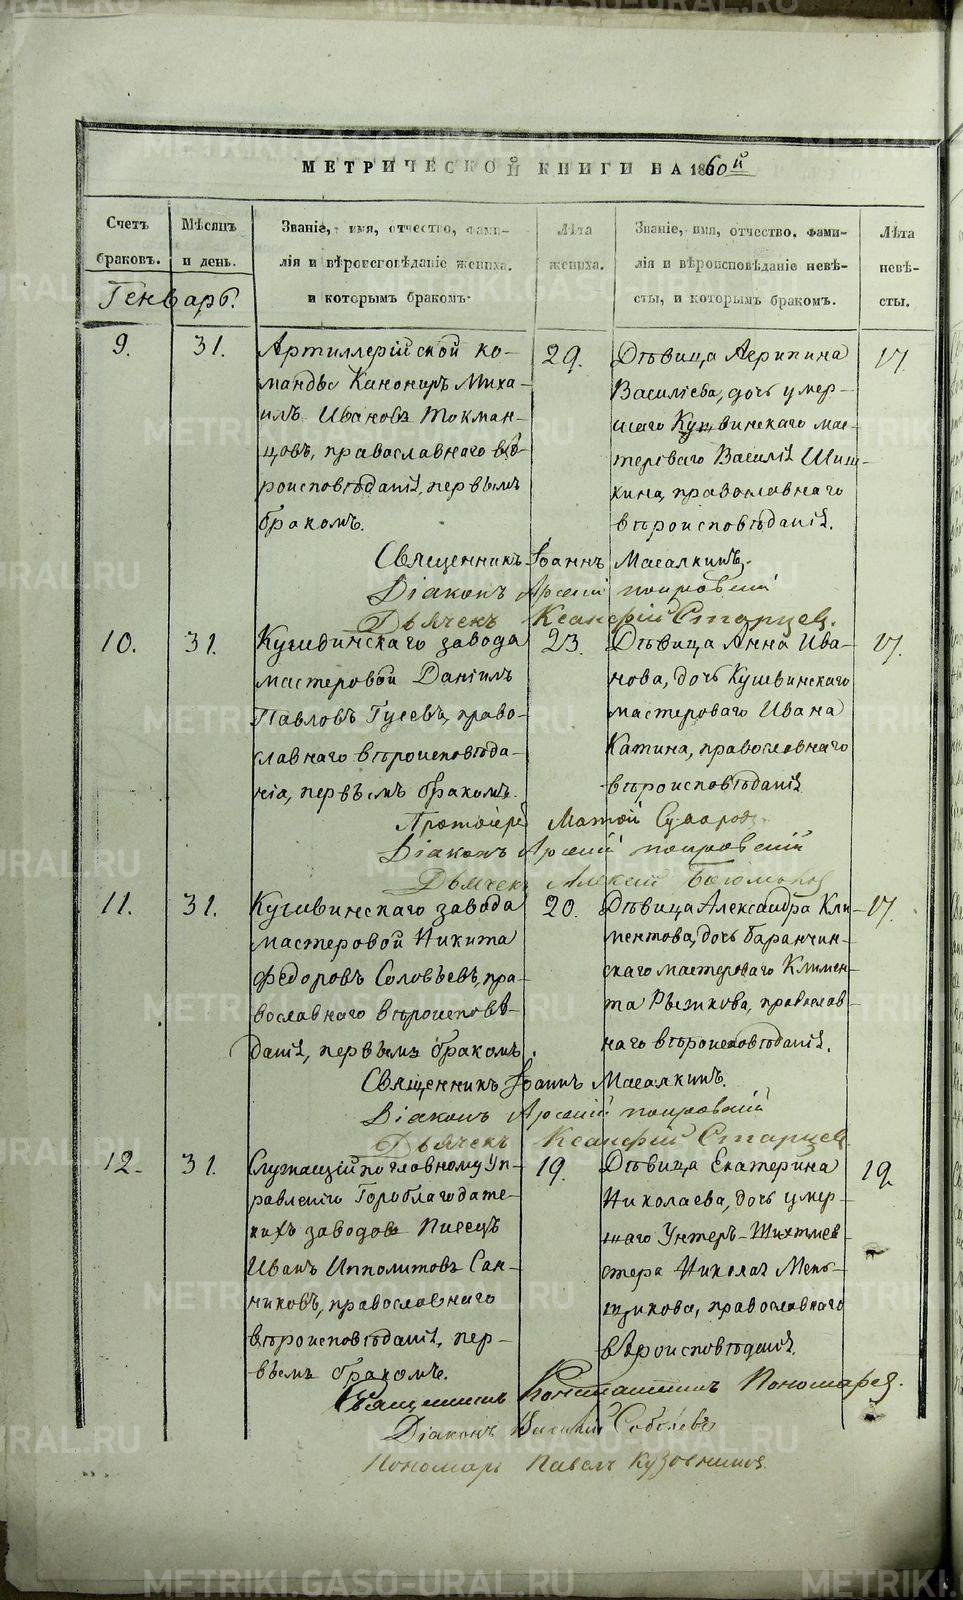 МЕТРИЧЕСКОЙ КНИГИ НА 1860й
Счетъ браковъ.
Мѣсяцъ и день.
Званіе, имя, отчество, фами-
лія и вѣроисповѣданіе жениха,
и которымъ бракомъ.
Лѣта жениха.
Званіе, имя, отчество, фами-
лія и вѣроисповѣданіе невѣ-
сты, и которымъ бракомъ.
Лѣта невѣ-
сты.
Генварь.
9.
31.
Артиллерійской ко-
манды Канониръ Миха-
илъ Ивановъ Токман-
цовъ, православнаго вѣ-
роисповѣданія, первымъ
бракомъ.
29.
Дѣвица Агрипина
Васильева, дочь умер-
шаго Кушвинскаго мас-
тероваго Василія Шиш-
кина, православнаго
вѣроисповѣданія.
17.
Священникъ Іоаннъ Масалкинъ.
Діаконъ Арсеній Покровскій
Дьячекъ Ксанфій Старцев.
10.
31.
Кушвинскаго завода
мастеровой Даніилъ
Павловъ Гусевъ, право-
славнаго вѣроисповѣда-
нія, первымъ бракомъ.
23.
Дѣвица Анна Ива-
нова, дочь Кушвинскаго
мастероваго Ивана
Катина, православнаго
вѣроисповѣданія
17.
Протоіерей Матѳій
Діаконъ Арсеній Покровскій
Дьячекъ Алексій Богомолов
11.
31.
Кушвинскаго завода
мастеровой Никита
Федоровъ Соловьевъ, пра-
вославнаго вѣроисповѣ-
данія, первымъ бракомъ.
20.
Дѣвица Александра Кли-
ментова, дочь Баранчин-
скаго мастероваго Климен-
та Рыжкова, православ-
наго вѣроисповѣданія.
17.
Священникъ Іоаннъ Масалкинъ.
Діаконъ Арсеній Покровскій
Дьячекъ Ксанфій Старцев
12.
31.
Служащій по главному Уп-
равленію Гороблагодатс-
кихъ заводовъ Писецъ
Иванъ Ипполитовъ Сан-
никовъ, православнаго
вѣроисповѣданія, пер-
вымъ бракомъ.
19.
Дѣвица Екатерина
Николаева, дочь умер-
шаго Унтеръ-Шихтмей-
стера Николая Мень-
щикова, православнаго
вѣроисповѣданія.
19.
Священникъ Константинъ Пономарев.
Діаконъ Василій Соболевъ
Пономарь Павелъ Кузовников
METRIKI.GASO-URAL.RU